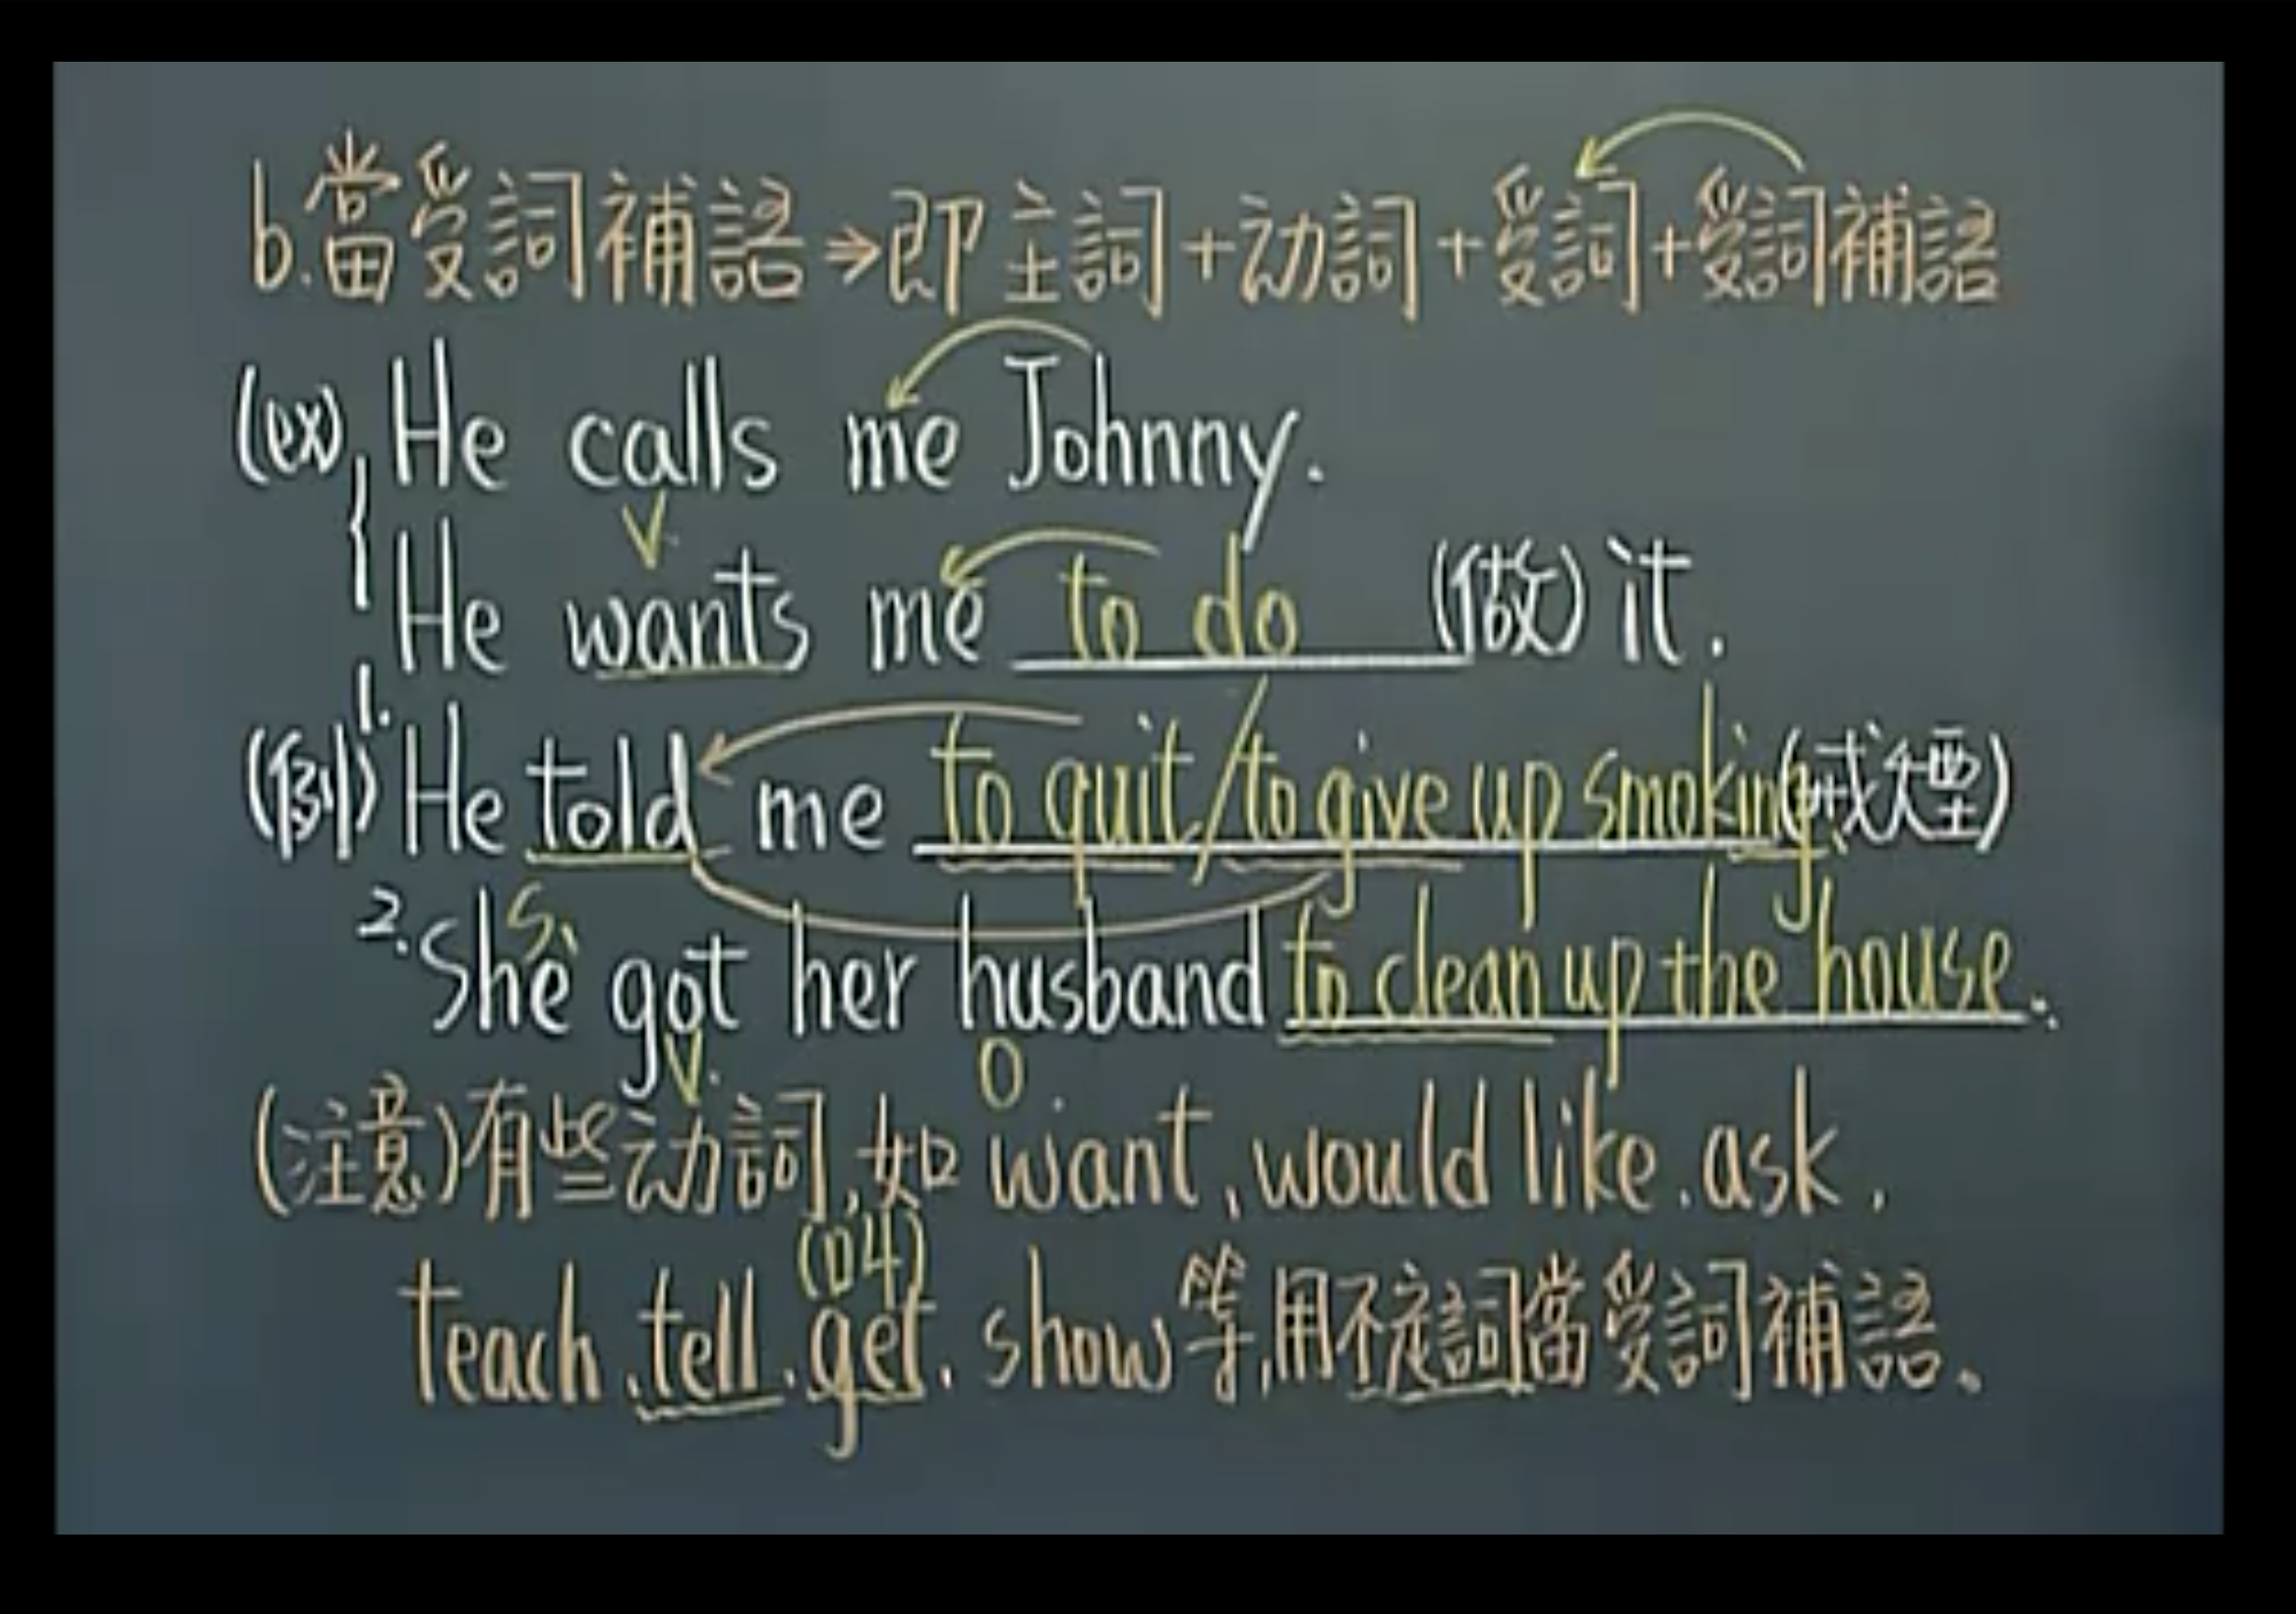 b.當受詞補語⇒即主詞+动詞+受詞+受詞補語
(ex) He calls me Johnny.
V.
He wants me to do (做) it.
(例) 1. He told me to quit/to give up smoking (戒煙).
S.
2. She got her husband to clean up the house.
V. O.
(注意)有些动詞,如 want, would like, ask,
(叫)
teach, tell, get, show等,用不定詞當受詞補語。